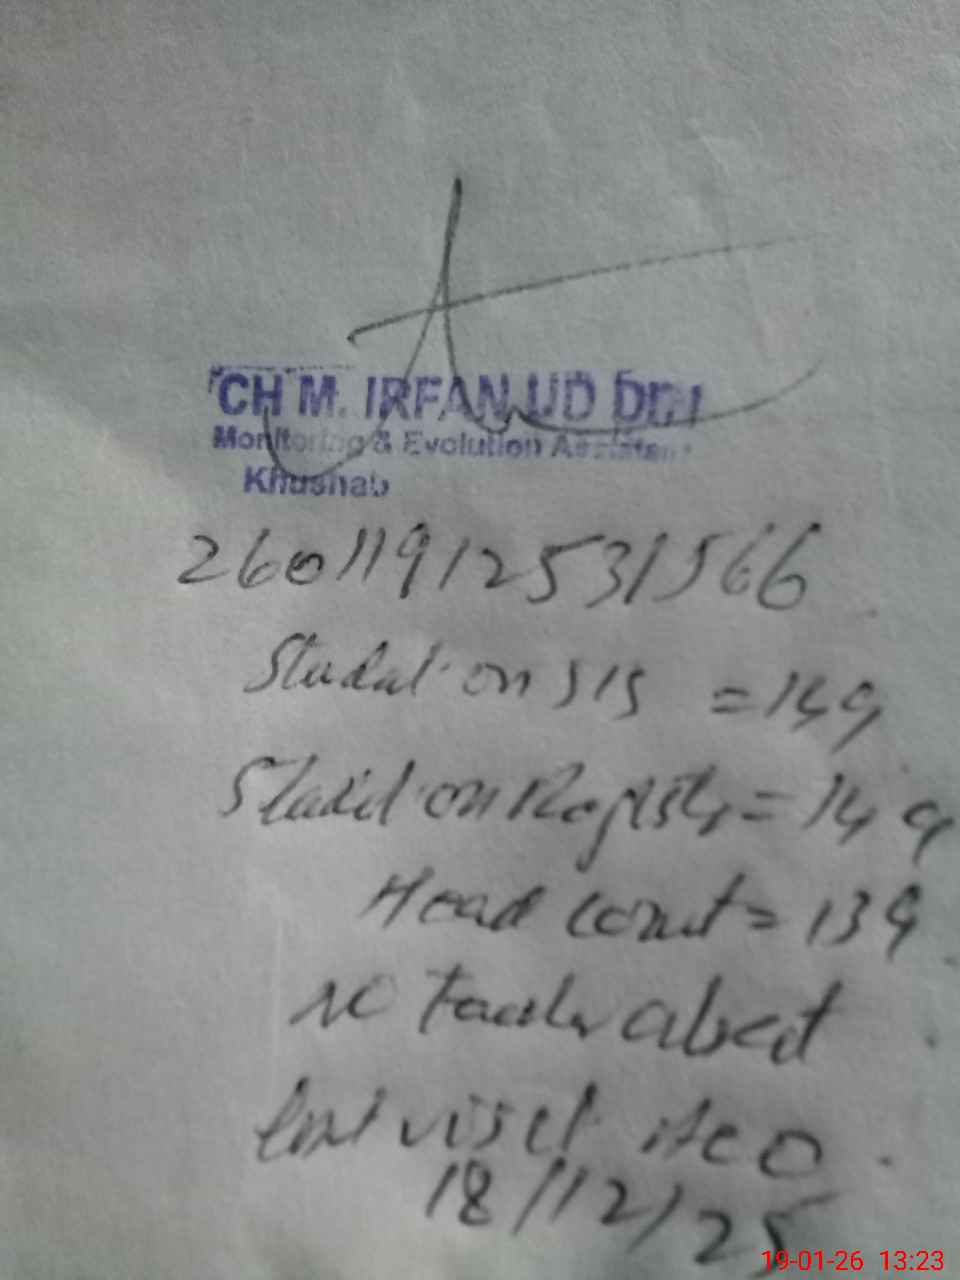 CH M. IRFAN UD DIN
Monitoring & Evolution Assistant
Khushab
26011912531566
Student on SIS = 149
Student on Register = 149
Head count = 139
no Teacher absent
last visit AEO
18/12/25
19-01-26 13:23